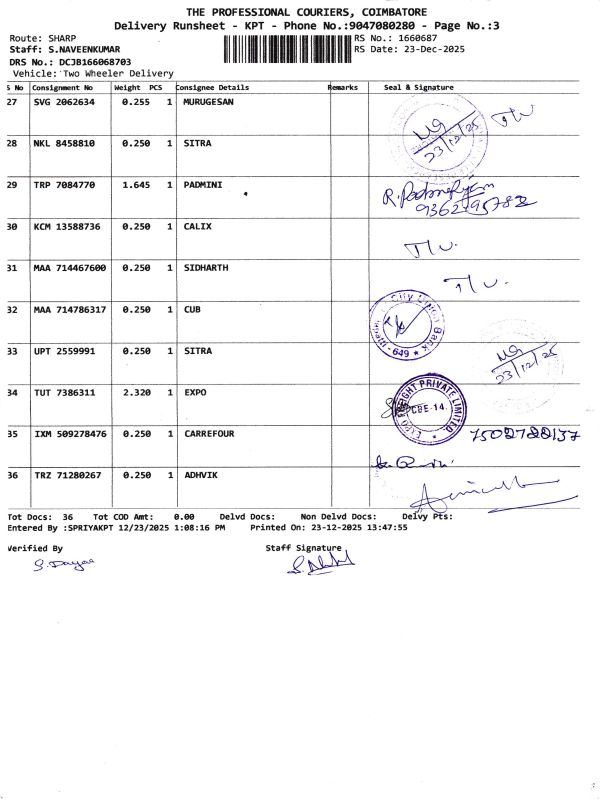 THE PROFESSIONAL COURIERS, COIMBATORE
Delivery Runsheet - KPT - Phone No.:9047080280 - Page No.:3
Route: SHARP
RS No.: 1660687
Staff: S.NAVEENKUMAR
RS Date: 23-Dec-2025
DRS No.: DCJB166068703
Vehicle: Two Wheeler Delivery
S No Consignment No Weight PCS Consignee Details Remarks Seal & Signature
27 SVG 2062634 0.255 1 MURUGESAN
23/12/25
28 NKL 8458810 0.250 1 SITRA
29 TRP 7084770 1.645 1 PADMINI
9362195782
30 KCM 13588736 0.250 1 CALIX
31 MAA 714467600 0.250 1 SIDHARTH
32 MAA 714786317 0.250 1 CUB
City Union Bank
649
33 UPT 2559991 0.250 1 SITRA
23/12/25
34 TUT 7386311 2.320 1 EXPO
EXPO FREIGHT PRIVATE LIMITED
CBE-14.
35 IXM 509278476 0.250 1 CARREFOUR
36 TRZ 71280267 0.250 1 ADHVIK
Tot Docs: 36 Tot COD Amt: 0.00 Delvd Docs: Non Delvd Docs: Delvy Pts:
Entered By :SPRIYAKPT 12/23/2025 1:08:16 PM Printed On: 23-12-2025 13:47:55
Verified By
Staff Signature